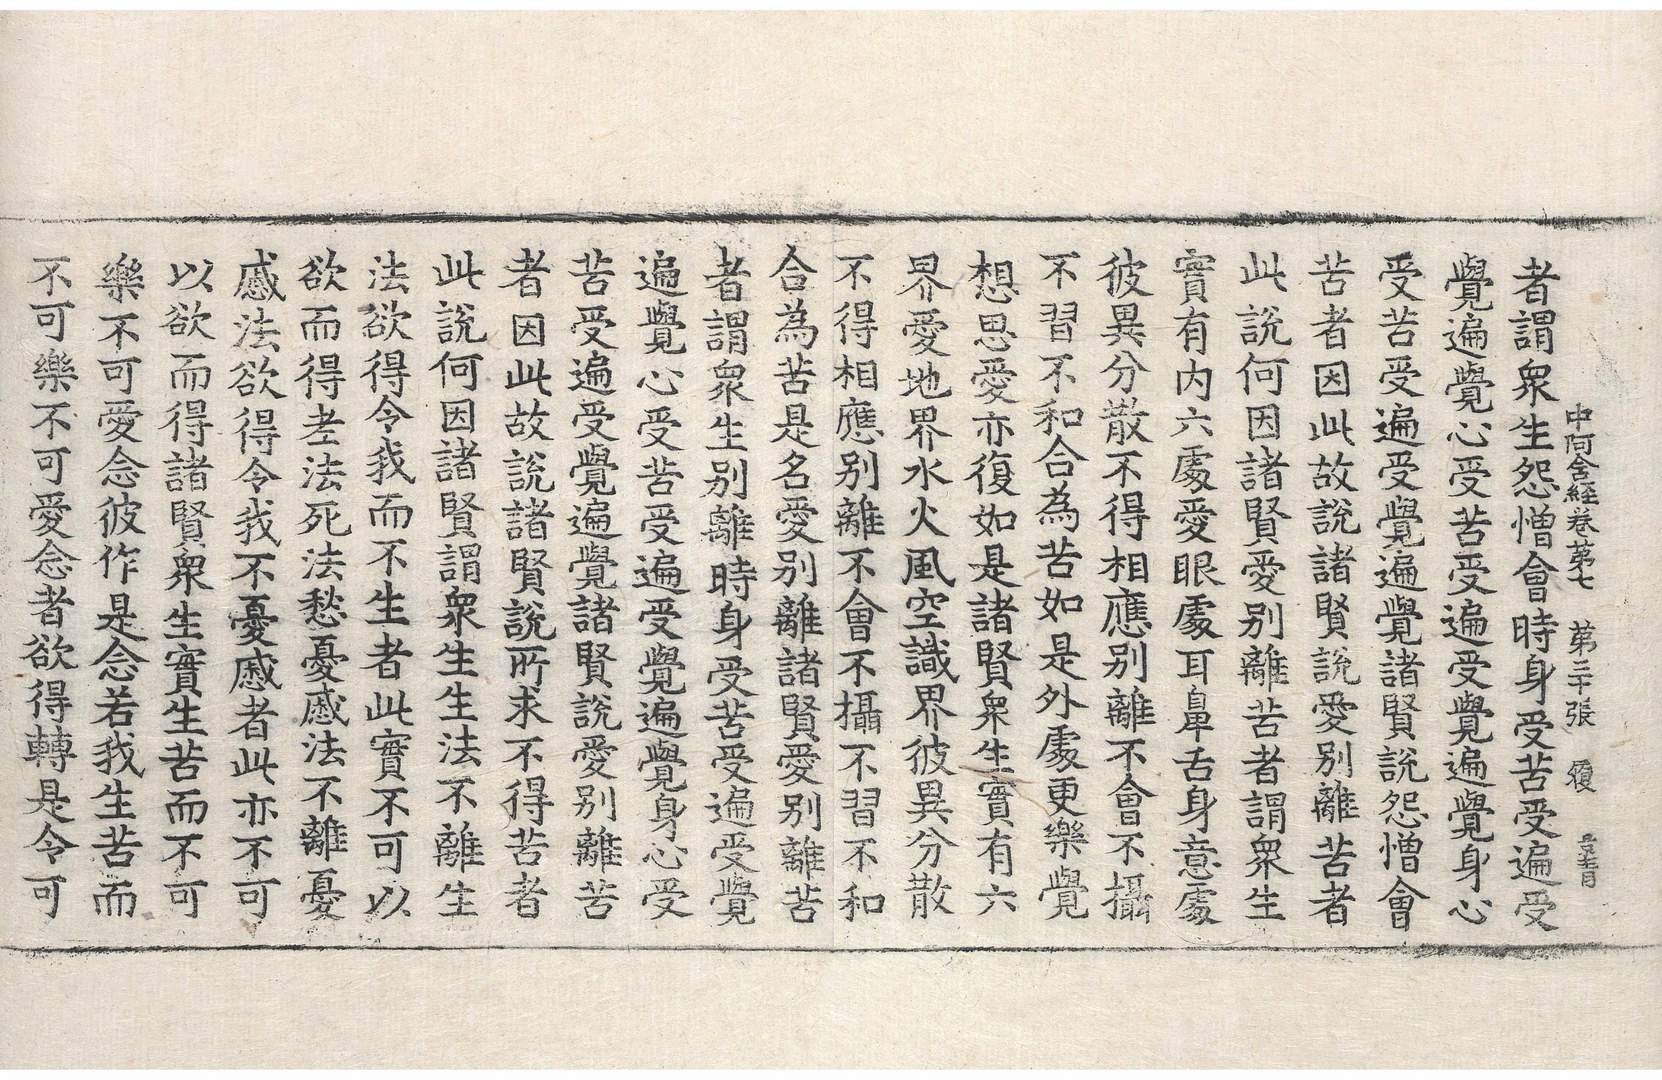 中阿含經卷第七 第二十張 履
者謂衆生怨憎會時身受苦受遍受
覺遍覺心受苦受遍受覺遍覺身心
受苦受遍受覺遍覺諸賢說怨憎會
苦者因此故說諸賢說愛別離苦者
此說何因諸賢愛別離苦者謂衆生
實有內六處愛眼處耳鼻舌身意處
彼異分散不得相應別離不會不攝
不習不和合為苦如是外處更樂覺
想思愛亦復如是諸賢衆生實有六
界愛地界水火風空識界彼異分散
不得相應別離不會不攝不習不和
合為苦是名愛別離諸賢愛別離苦
者謂衆生別離時身受苦受遍受覺
遍覺心受苦受遍受覺遍覺身心受
苦受遍受覺遍覺諸賢說愛別離苦
者因此故說諸賢說所求不得苦者
此說何因諸賢謂衆生生法不離生
法欲得令我而不生者此實不可以
欲而得老法死法愁憂慼法不離憂
慼法欲得令我不憂慼者此亦不可
以欲而得諸賢衆生實生苦而不可
樂不可愛念彼作是念若我生苦而
不可樂不可愛念者欲得轉是令可